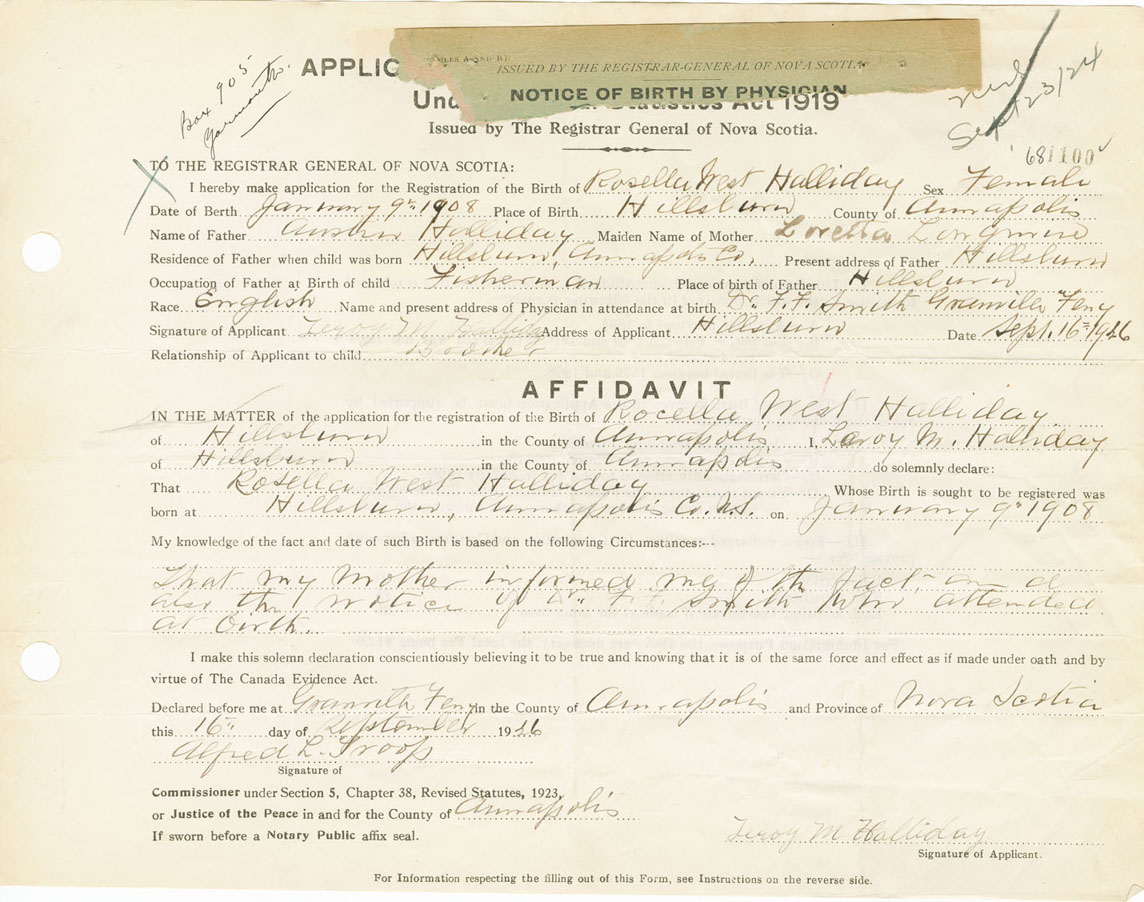 Box 905
Yarmouth.
APPLIC
ISSUED BY THE REGISTRAR-GENERAL OF NOVA SCOTIA
NOTICE OF BIRTH BY PHYSICIAN
Und Statistics Act 1919
Sept 23/24
Issued by The Registrar General of Nova Scotia.
681100
TO THE REGISTRAR GENERAL OF NOVA SCOTIA:
I hereby make application for the Registration of the Birth of Rosella West Halliday Sex Female
Date of Berth January 9th 1908 Place of Birth Hillsburn County of Annapolis
Name of Father Austin Halliday Maiden Name of Mother Loretta Longmire
Residence of Father when child was born Hillsburn, Annapolis Co., Present address of Father Hillsburn
Occupation of Father at Birth of child Fisherman Place of birth of Father Hillsburn
Race English Name and present address of Physician in attendance at birth Dr. F. F. Smith Granville Ferry
Signature of Applicant Leroy M Halliday Address of Applicant Hillsburn Date Sept. 16th 1926
Relationship of Applicant to child Brother
AFFIDAVIT
IN THE MATTER of the application for the registration of the Birth of Rocella West Halliday
of Hillsburn in the County of Annapolis I, Leroy M. Halliday
of Hillsburn in the County of Annapolis do solemnly declare:
That Rosella West Halliday Whose Birth is sought to be registered was
born at Hillsburn, Annapolis Co. N.S. on January 9th 1908
My knowledge of the fact and date of such Birth is based on the following Circumstances:--
That my Mother informed me of the fact and
also the notice of Dr. F. F. Smith who attended
at birth.
I make this solemn declaration conscientiously believing it to be true and knowing that it is of the same force and effect as if made under oath and by
virtue of The Canada Evidence Act.
Declared before me at Granville Ferry in the County of Annapolis and Province of Nova Scotia
this 16th day of September 1926
Alfred L. Troop
Signature of
Commissioner under Section 5, Chapter 38, Revised Statutes, 1923,
or Justice of the Peace in and for the County of Annapolis
If sworn before a Notary Public affix seal.
Leroy M Halliday
Signature of Applicant.
For Information respecting the filling out of this Form, see Instructions on the reverse side.